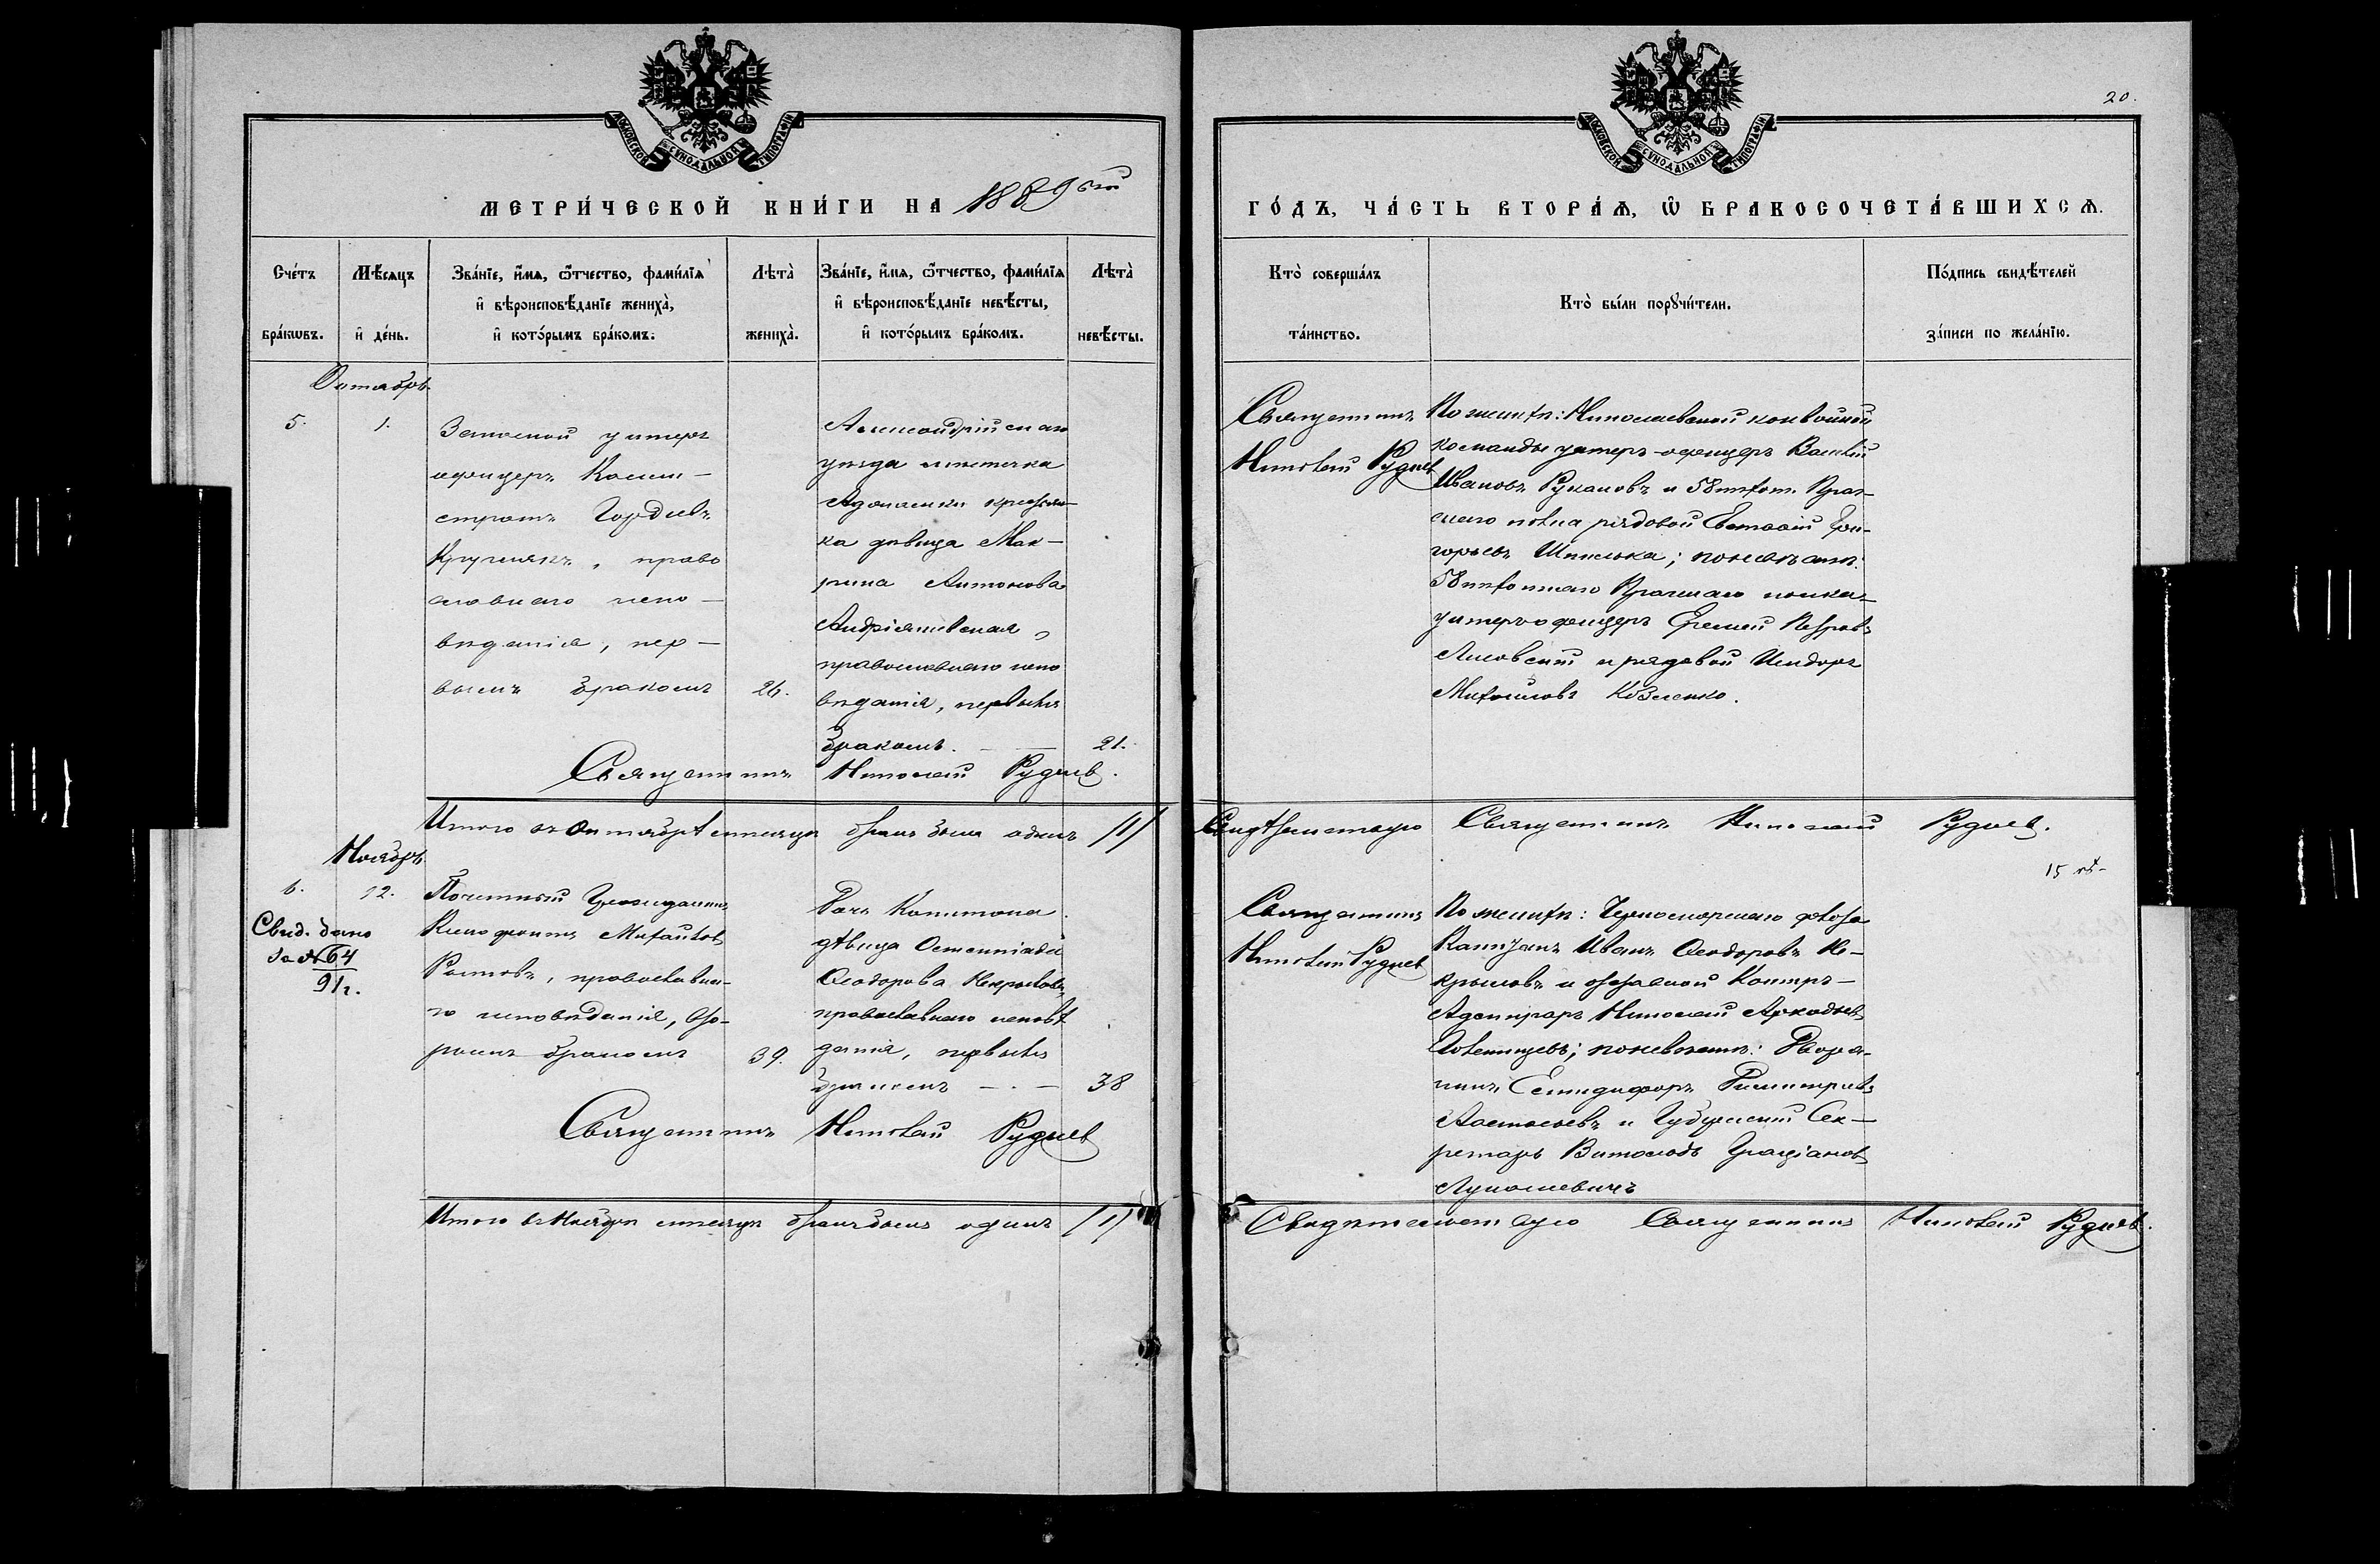 20.
МОСКОВСКОЙ СѴНОДАЛЬНОЙ ТИПОГРАФІИ
МОСКОВСКОЙ СѴНОДАЛЬНОЙ ТИПОГРАФІИ
МЕТРИ́ЧЕСКОЙ КНИ́ГИ НА 1889 ый
ГО́ДЪ, ЧА́СТЬ ВТОРА́Ѧ, Ѡ҆ БРАКОСОЧЕТА́ВШИХСѦ.
Сче́тъ бра́кѡвъ.
Мѣ́сѧцъ и҆ де́нь.
Зва́нїе, и҆́мѧ, ѻ҆́тчество, фами́лїѧ
и҆ вѣроисповѣ́данїе жениха̀,
и҆ кото́рымъ бра́комъ.
Лѣта̀ жениха̀.
Зва́нїе, и҆́мѧ, ѻ҆́тчество, фами́лїѧ
и҆ вѣроисповѣ́данїе невѣ́сты,
и҆ кото́рымъ бра́комъ.
Лѣта̀ невѣ́сты.
Кто̀ соверша́лъ та́инство.
Кто̀ бы́ли порꙋчи́тели.
По́дпись свидѣ́телей за́писи по жела́нїю.
Октябрь
5.
1.
Запасной унтеръ
офицеръ Калли-
стратъ Гордіевъ
право
славнаго испо-
вѣданія, пер-
вымъ бракомъ
26.
Александрійскаго
уѣзда мѣстечка
крестьян-
ка дѣвица Мак-
рина Антонова
Андріяшевская,
православнаго испо
вѣданія, первымъ
бракомъ.
21.
Священникъ
Николай Рудневъ
По женихѣ: Николаевской конвойной
команды унтеръ-офицеръ Василій
Ивановъ Рукановъ и 58 пѣхот. Праж-
скаго полка рядовой Евстафій Гри-
горьевъ Шпилька; по невѣстѣ:
58 пѣхотнаго Пражскаго полка
унтеръ-офицеръ Еремей Петровъ
и рядовой Исидоръ
Михайловъ Козленко.
Священникъ Николай Рудневъ.
Итого въ Октябрѣ мѣсяцѣ бракъ былъ одинъ /1/
Свидѣтельствую Священникъ Николай Рудневъ.
Ноябрь
6.
12.
Свид. дано
за № 64
91 г.
Почетный Гражданинъ
Ксенофонтъ Михайловъ
православна-
го исповѣданія, вто-
рымъ бракомъ
39.
Дочь Капитана
дѣвица
Ѳеодорова Некрасова,
православнаго исповѣ
данія, первымъ
бракомъ
38
15 лѣт
Священникъ
Николай Рудневъ
По женихѣ: Черноморскаго флота
Капитанъ Иванъ Ѳеодоровъ Не-
и отставной Контръ-
Адмиралъ Николай Аркадьевъ
по невѣстѣ: Дворя-
нинъ
и Губернскій Сек-
ретарь Витольдъ Граціановъ
Лукашевичъ
Священникъ Николай Рудневъ
Итого въ Ноябрѣ мѣсяцѣ бракъ былъ одинъ /1/
Свидѣтельствую Священникъ Николай Рудневъ.